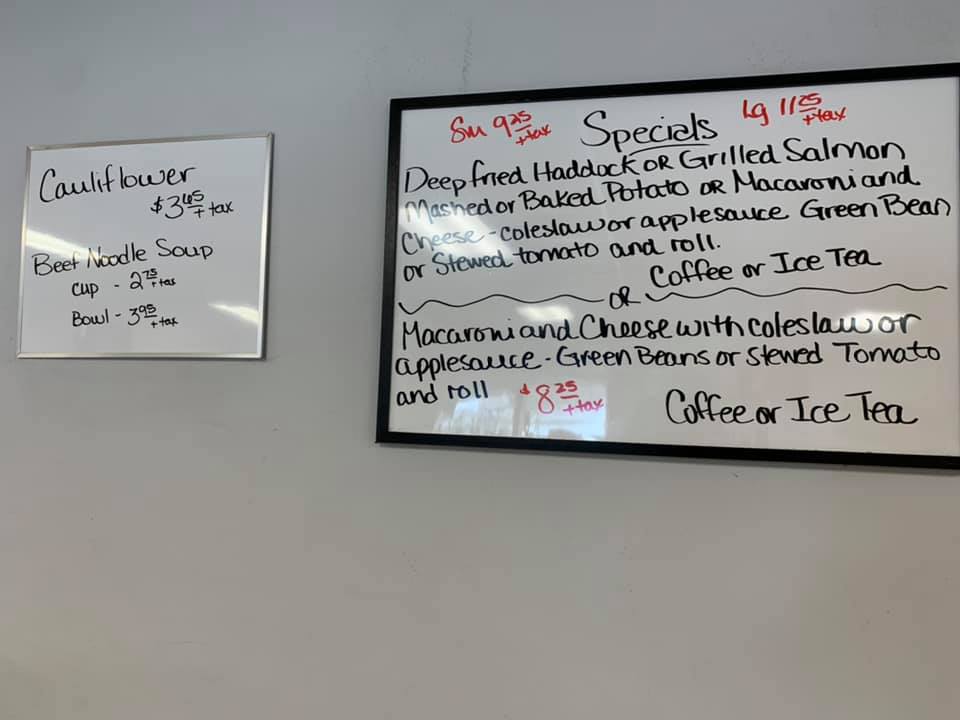 Cauliflower
$3.65 + tax
Beef Noodle Soup
cup - 2.75 + tax
Bowl - 3.95 + tax
Sm 9.25 + tax Specials Lg 11.25 + tax
Deep fried Haddock OR Grilled Salmon
Mashed or Baked Potato OR Macaroni and
Cheese - coleslaw or applesauce Green Bean
or Stewed tomato and roll.
Coffee or Ice Tea
OR
Macaroni and Cheese with coleslaw or
applesauce - Green Beans or stewed Tomato
and roll $8.25 + tax
Coffee or Ice Tea